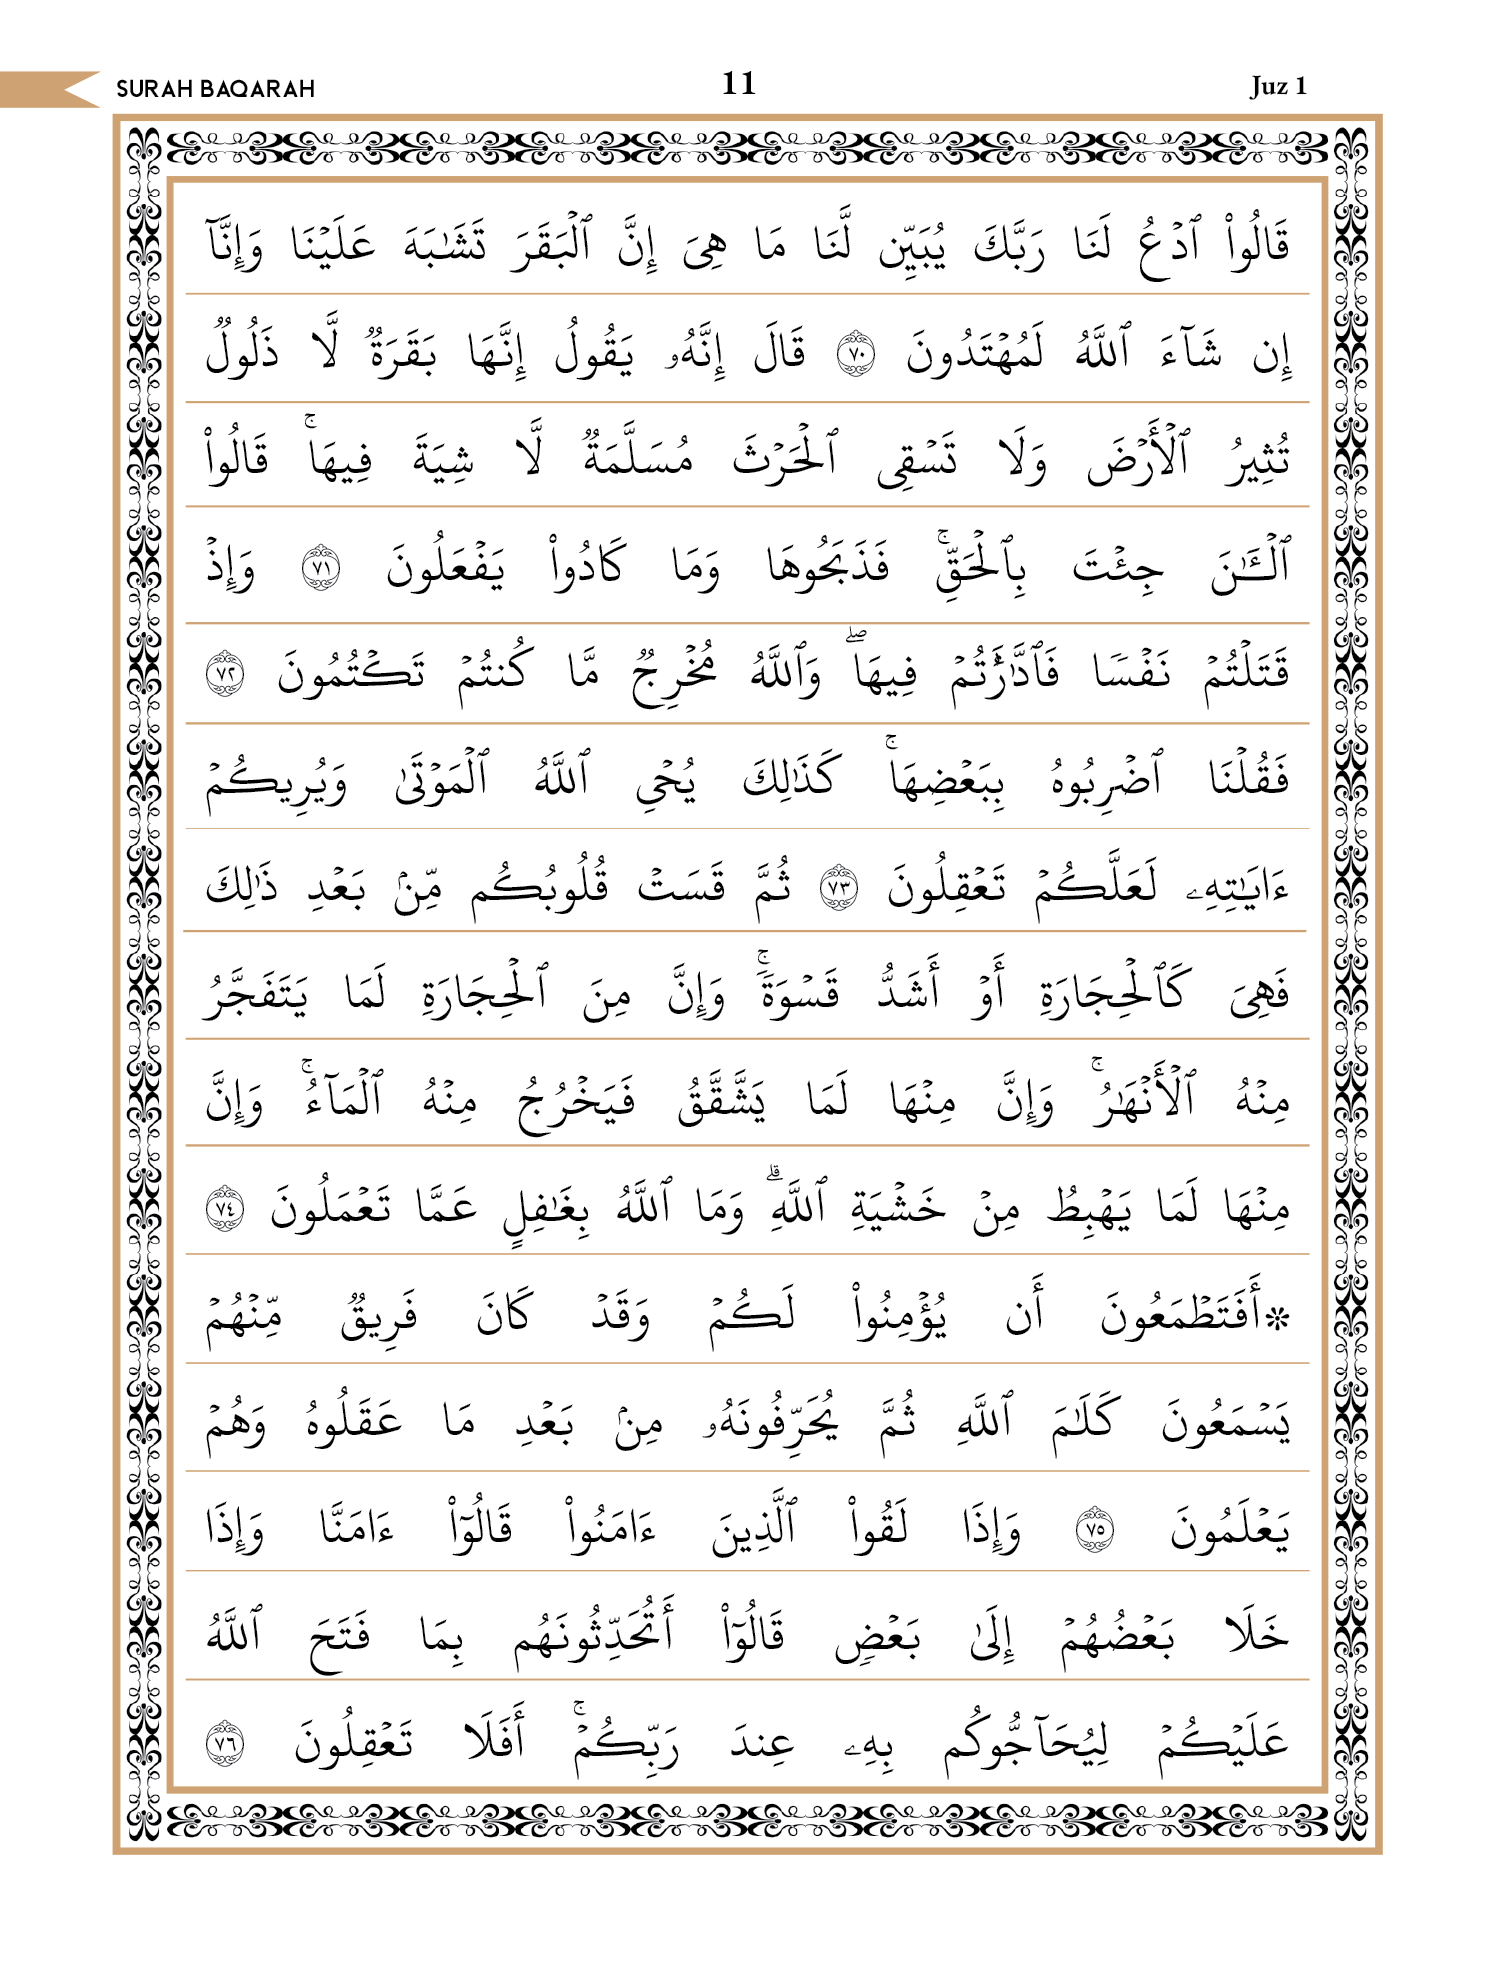 SURAH BAQARAH 11 Juz 1
قَالُوا۟ ٱدْعُ لَنَا رَبَّكَ يُبَيِّن لَّنَا مَا هِىَ إِنَّ ٱلْبَقَرَ تَشَـٰبَهَ عَلَيْنَا وَإِنَّآ
إِن شَآءَ ٱللَّهُ لَمُهْتَدُونَ ٧٠ قَالَ إِنَّهُۥ يَقُولُ إِنَّهَا بَقَرَةٌ لَّا ذَلُولٌ
تُثِيرُ ٱلْأَرْضَ وَلَا تَسْقِى ٱلْحَرْثَ مُسَلَّمَةٌ لَّا شِيَةَ فِيهَا ۚ قَالُوا۟
ٱلْـَٔـٰنَ جِئْتَ بِٱلْحَقِّ ۚ فَذَبَحُوهَا وَمَا كَادُوا۟ يَفْعَلُونَ ٧١ وَإِذْ
قَتَلْتُمْ نَفْسًا فَٱدَّٰرَْٰٔتُمْ فِيهَا ۖ وَٱللَّهُ مُخْرِجٌ مَّا كُنتُمْ تَكْتُمُونَ ٧٢
فَقُلْنَا ٱضْرِبُوهُ بِبَعْضِهَا ۚ كَذَٰلِكَ يُحْىِ ٱللَّهُ ٱلْمَوْتَىٰ وَيُرِيكُمْ
ءَايَـٰتِهِۦ لَعَلَّكُمْ تَعْقِلُونَ ٧٣ ثُمَّ قَسَتْ قُلُوبُكُم مِّنۢ بَعْدِ ذَٰلِكَ
فَهِىَ كَٱلْحِجَارَةِ أَوْ أَشَدُّ قَسْوَةً ۚ وَإِنَّ مِنَ ٱلْحِجَارَةِ لَمَا يَتَفَجَّرُ
مِنْهُ ٱلْأَنْهَـٰرُ ۚ وَإِنَّ مِنْهَا لَمَا يَشَّقَّقُ فَيَخْرُجُ مِنْهُ ٱلْمَآءُ ۚ وَإِنَّ
مِنْهَا لَمَا يَهْبِطُ مِنْ خَشْيَةِ ٱللَّهِ ۗ وَمَا ٱللَّهُ بِغَـٰفِلٍ عَمَّا تَعْمَلُونَ ٧٤
* أَفَتَطْمَعُونَ أَن يُؤْمِنُوا۟ لَكُمْ وَقَدْ كَانَ فَرِيقٌ مِّنْهُمْ
يَسْمَعُونَ كَلَـٰمَ ٱللَّهِ ثُمَّ يُحَرِّفُونَهُۥ مِنۢ بَعْدِ مَا عَقَلُوهُ وَهُمْ
يَعْلَمُونَ ٧٥ وَإِذَا لَقُوا۟ ٱلَّذِينَ ءَامَنُوا۟ قَالُوٓا۟ ءَامَنَّا وَإِذَا
خَلَا بَعْضُهُمْ إِلَىٰ بَعْضٍ قَالُوٓا۟ أَتُحَدِّثُونَهُم بِمَا فَتَحَ ٱللَّهُ
عَلَيْكُمْ لِيُحَآجُّوكُم بِهِۦ عِندَ رَبِّكُمْ ۚ أَفَلَا تَعْقِلُونَ ٧٦